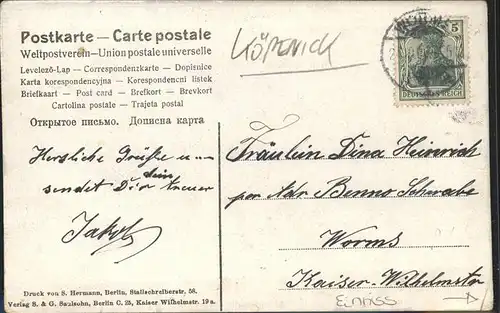 Postkarte — Carte postale
Weltpostverein — Union postale universelle
Levelező-Lap — Correspondenzkarte — Dopisnice
Karta korespondencyjna — Korespondencni listek
Briefkaart — Post card — Brefkort — Brevkort
Cartolina postale — Trajeta postal
Открытое письмо. Дописна карта
KÖPENICK
5
DEUTSCHES REICH
Herzliche Grüße
sendet Dir dein treuer
Jakob
Fräulein Dina Heinrich
per Adr Benno Schwabe
Worms
Kaiser-Wilhelmstr
EINRISS
Druck von S. Hermann, Berlin, Stallschreiberstr. 58.
Verlag S. & G. Saulsohn, Berlin C. 25, Kaiser Wilhelmstr. 19 a.